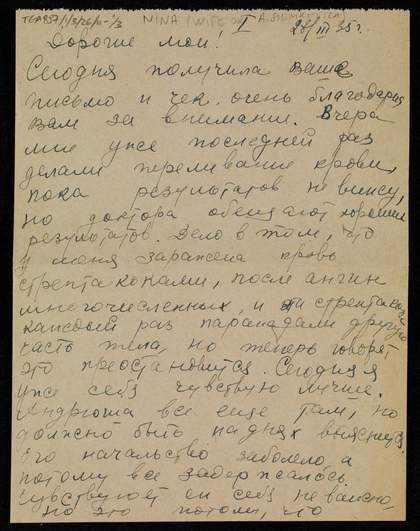 NINA (WIFE OF A.
I
28/III 35 г.
Дорогие мои!
Сегодня получила ваше
письмо и чек, очень благодарна
вам за внимание. Вчера
мне уже последний раз
делали переливание крови,
пока результатов не вижу,
но доктора обещают хороших
результатов. Дело в том, что
у меня заражена кровь
стрептакоками, после ангин
многочисленных, и эти стрептакоки
каждый раз парападали другую
часть тела, но теперь говорят
это преостановится. Сегодня я
уже себя чувствую лучше.
Андрюша все еще там, но
должно быть на днях выяснится.
Его начальство заболело, а
потому все задержалось.
Чувствует он себя неважно,
но это потому, что